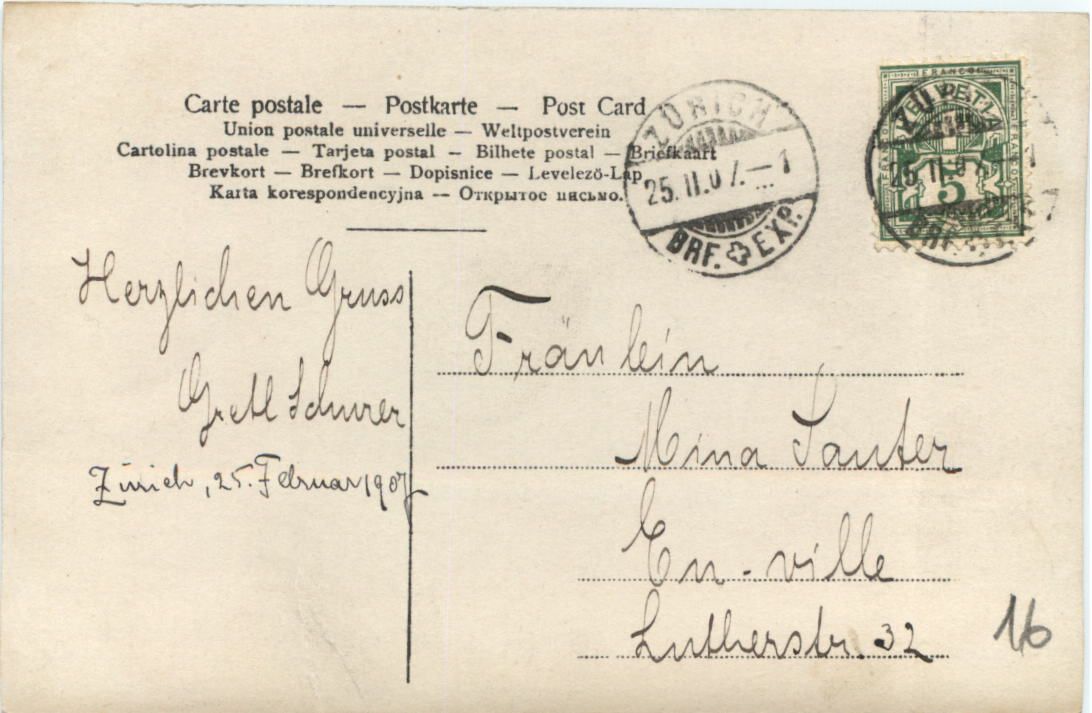 Carte postale — Postkarte — Post Card
Union postale universelle — Weltpostverein
Cartolina postale — Tarjeta postal — Bilhete postal — Briefkaart
Brevkort — Brefkort — Dopisnice — Levelező-Lap
Karta korespondencyjna — Открытое письмо.
ZÜRICH
25.II.07.–1
BRF. EXP.
FRANCO
HELVETIA
5
Herzlichen Gruss
Gretl Schurer
Zürich, 25. Februar 1907
Fräulein
Mina Sauter
En-ville
Lutherstr. 32
16